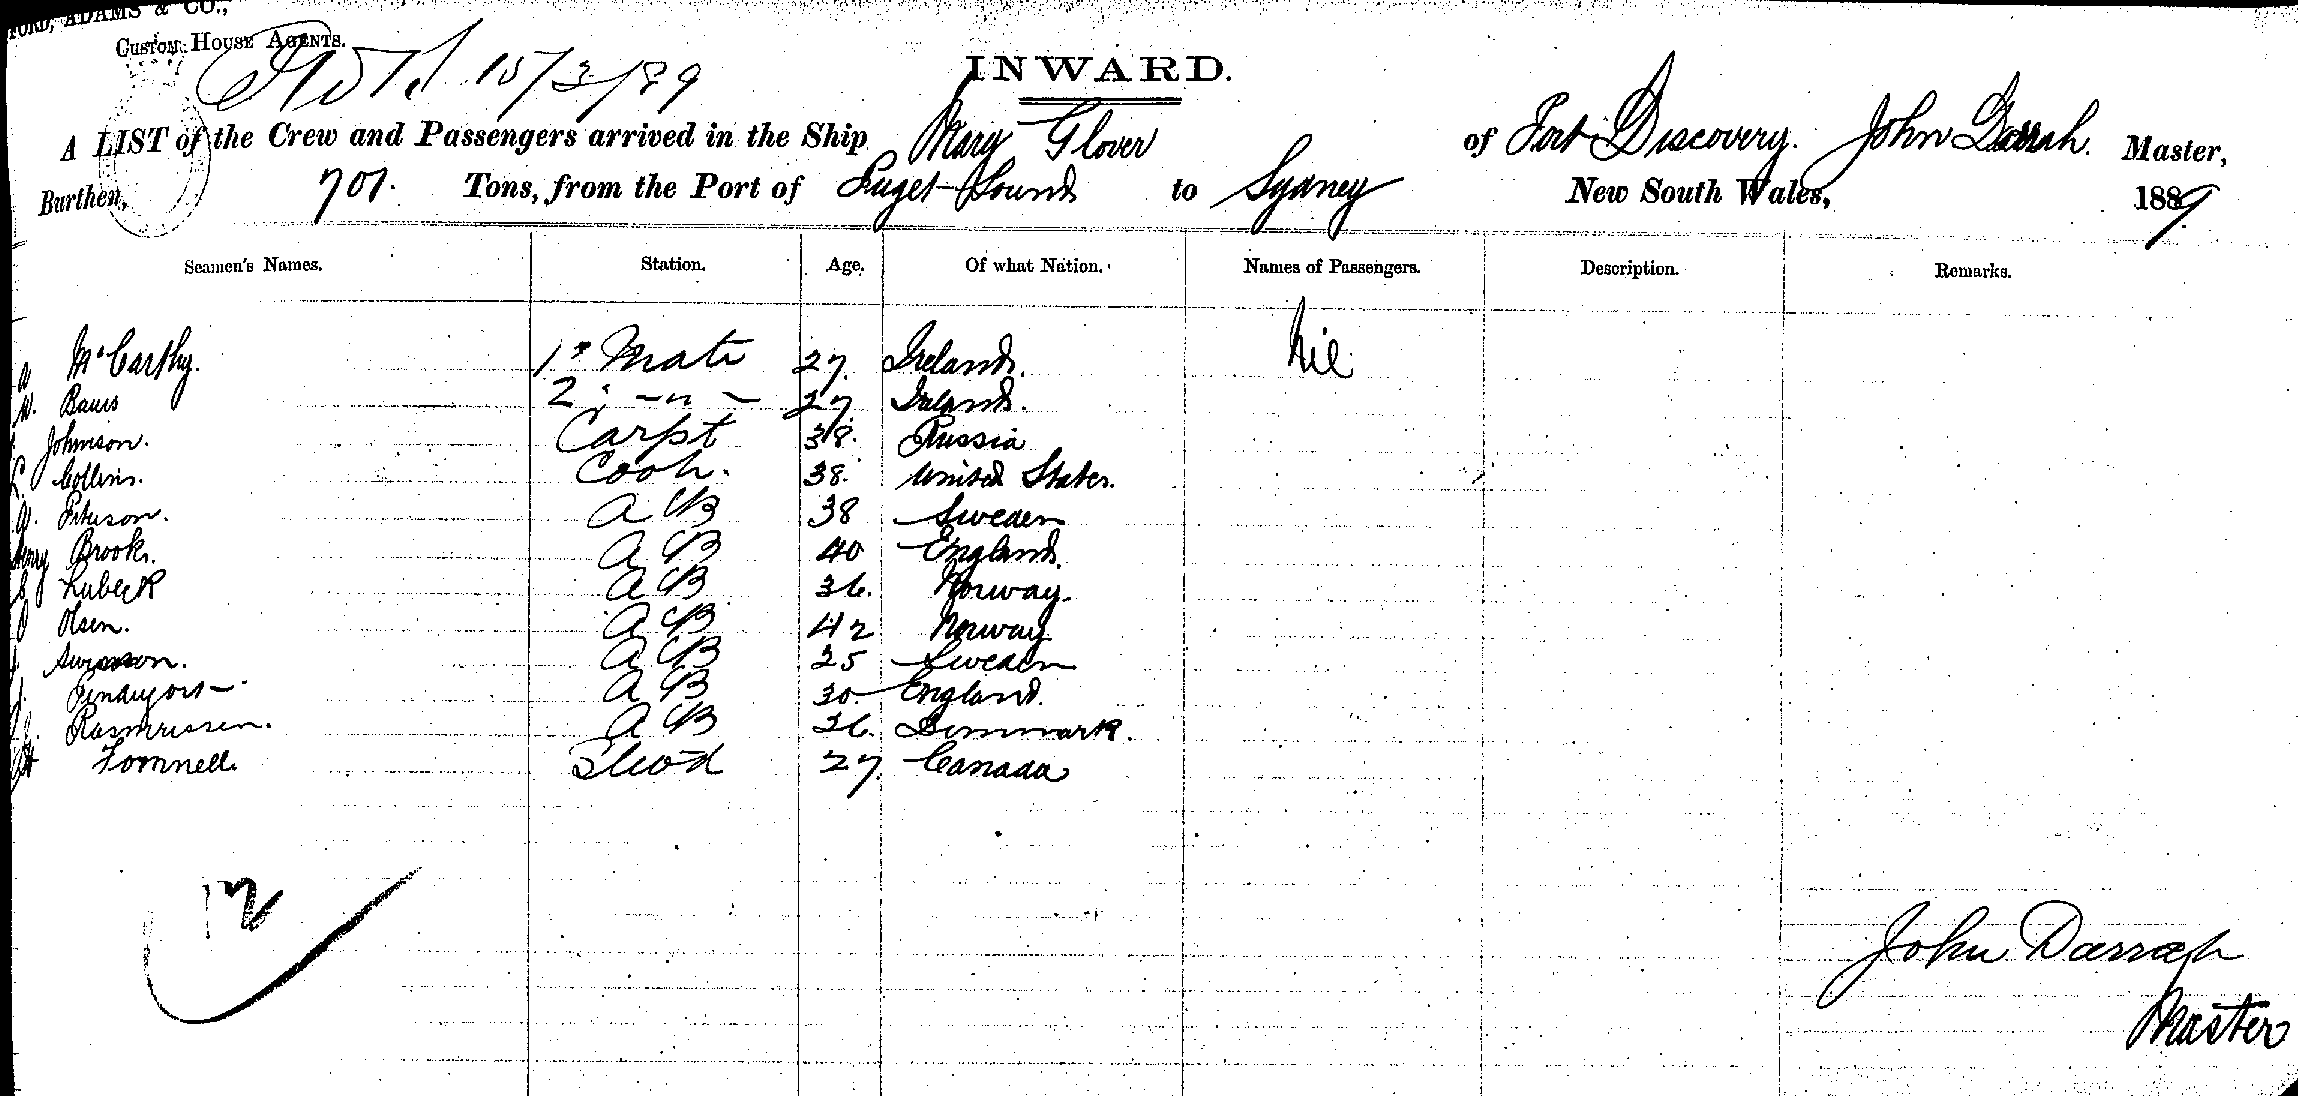 ADAMS & CO.,
CUSTOM HOUSE AGENTS.
15/3/89
INWARD.
A LIST of the Crew and Passengers arrived in the Ship Mary Glover of Port Discovery. John Darrah. Master,
Burthen, 707. Tons, from the Port of Puget Sound to Sydney New South Wales, 1889
Seamen's Names. Station. Age. Of what Nation. Names of Passengers. Description. Remarks.
McCarthy. 1st Mate 27. Ireland. Nil
W. 2 " 27. Ireland.
Johnson. Carpt 38. Russia
Collins. Cook. 38. United States.
Peterson. A B 38 Sweden
Henry Brooks. A B 40 England.
Lubeck A B 36. Norway.
Olsen. A B 42 Norway
Swanson. A B 25 Sweden
A B 30. England.
Rasmussen. A B 36. Denmark.
Stwd 27. Canada
12
John Darragh
Master